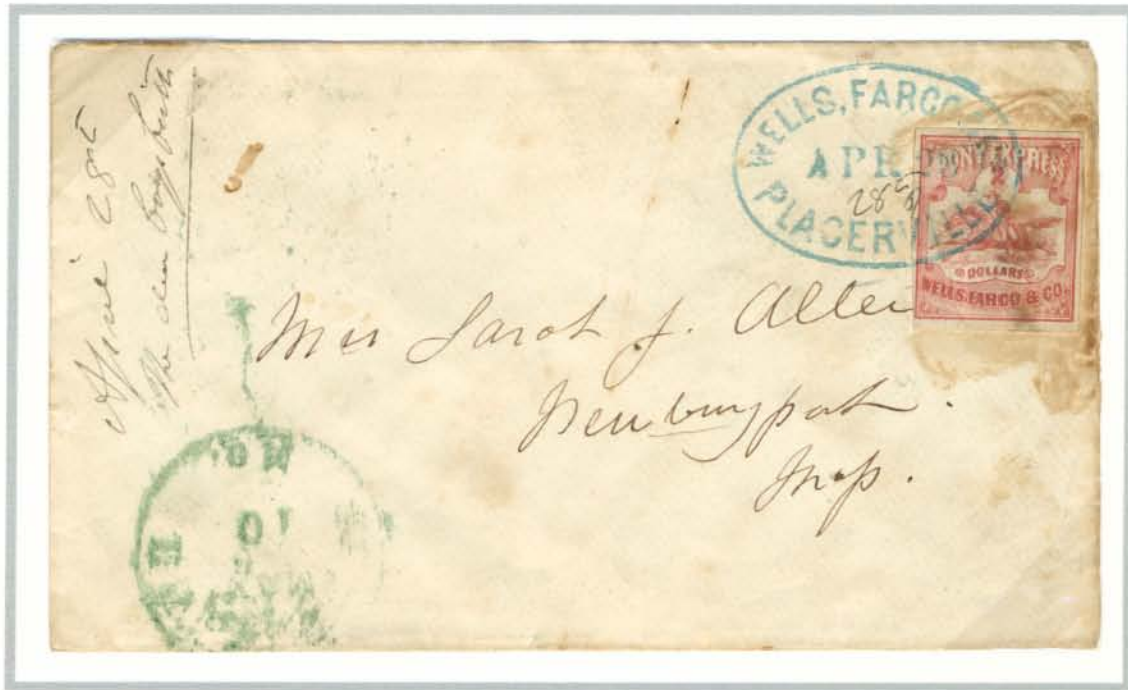 April 28th
The
WELLS, FARGO
APR
28th
PLACERVILLE
PONY EXPRESS
2
DOLLARS
WELLS, FARGO & CO.
Mrs Sarah J. Allen
Newburyport.
Mass.
MO.
10
MAY